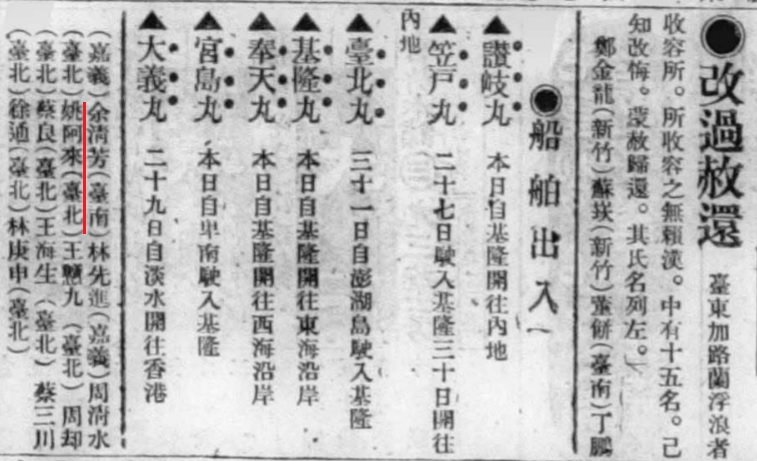 ●改過赦還 臺東加路蘭浮浪者
收容所。所收容之無賴漢。中有十五名。己
知改悔。蒙赦歸還。其氏名列左。」
鄭金龍(新竹)蘇崁(新竹)董餅(臺南)丁鵬
●船舶出入
▲讚岐丸 本日自基隆開往內地
▲笠戶丸 二十七日駛入基隆三十日開往
內地
▲臺北丸 三十一日自澎湖島駛入基隆
▲基隆丸 本日自基隆開往東海沿岸
▲奉天丸 本日自基隆開往西海沿岸
▲宮島丸 本日自卑南駛入基隆
▲大義丸 二十九日自淡水開往香港
(嘉義)余清芳(臺南)林先進(嘉義)周淸水
(臺北)姚阿來(臺北)王戇九(臺北)周却
(臺北)蔡良(臺北)王海生(臺北)蔡三川
(臺北)徐通(臺北)林庚申(臺北)